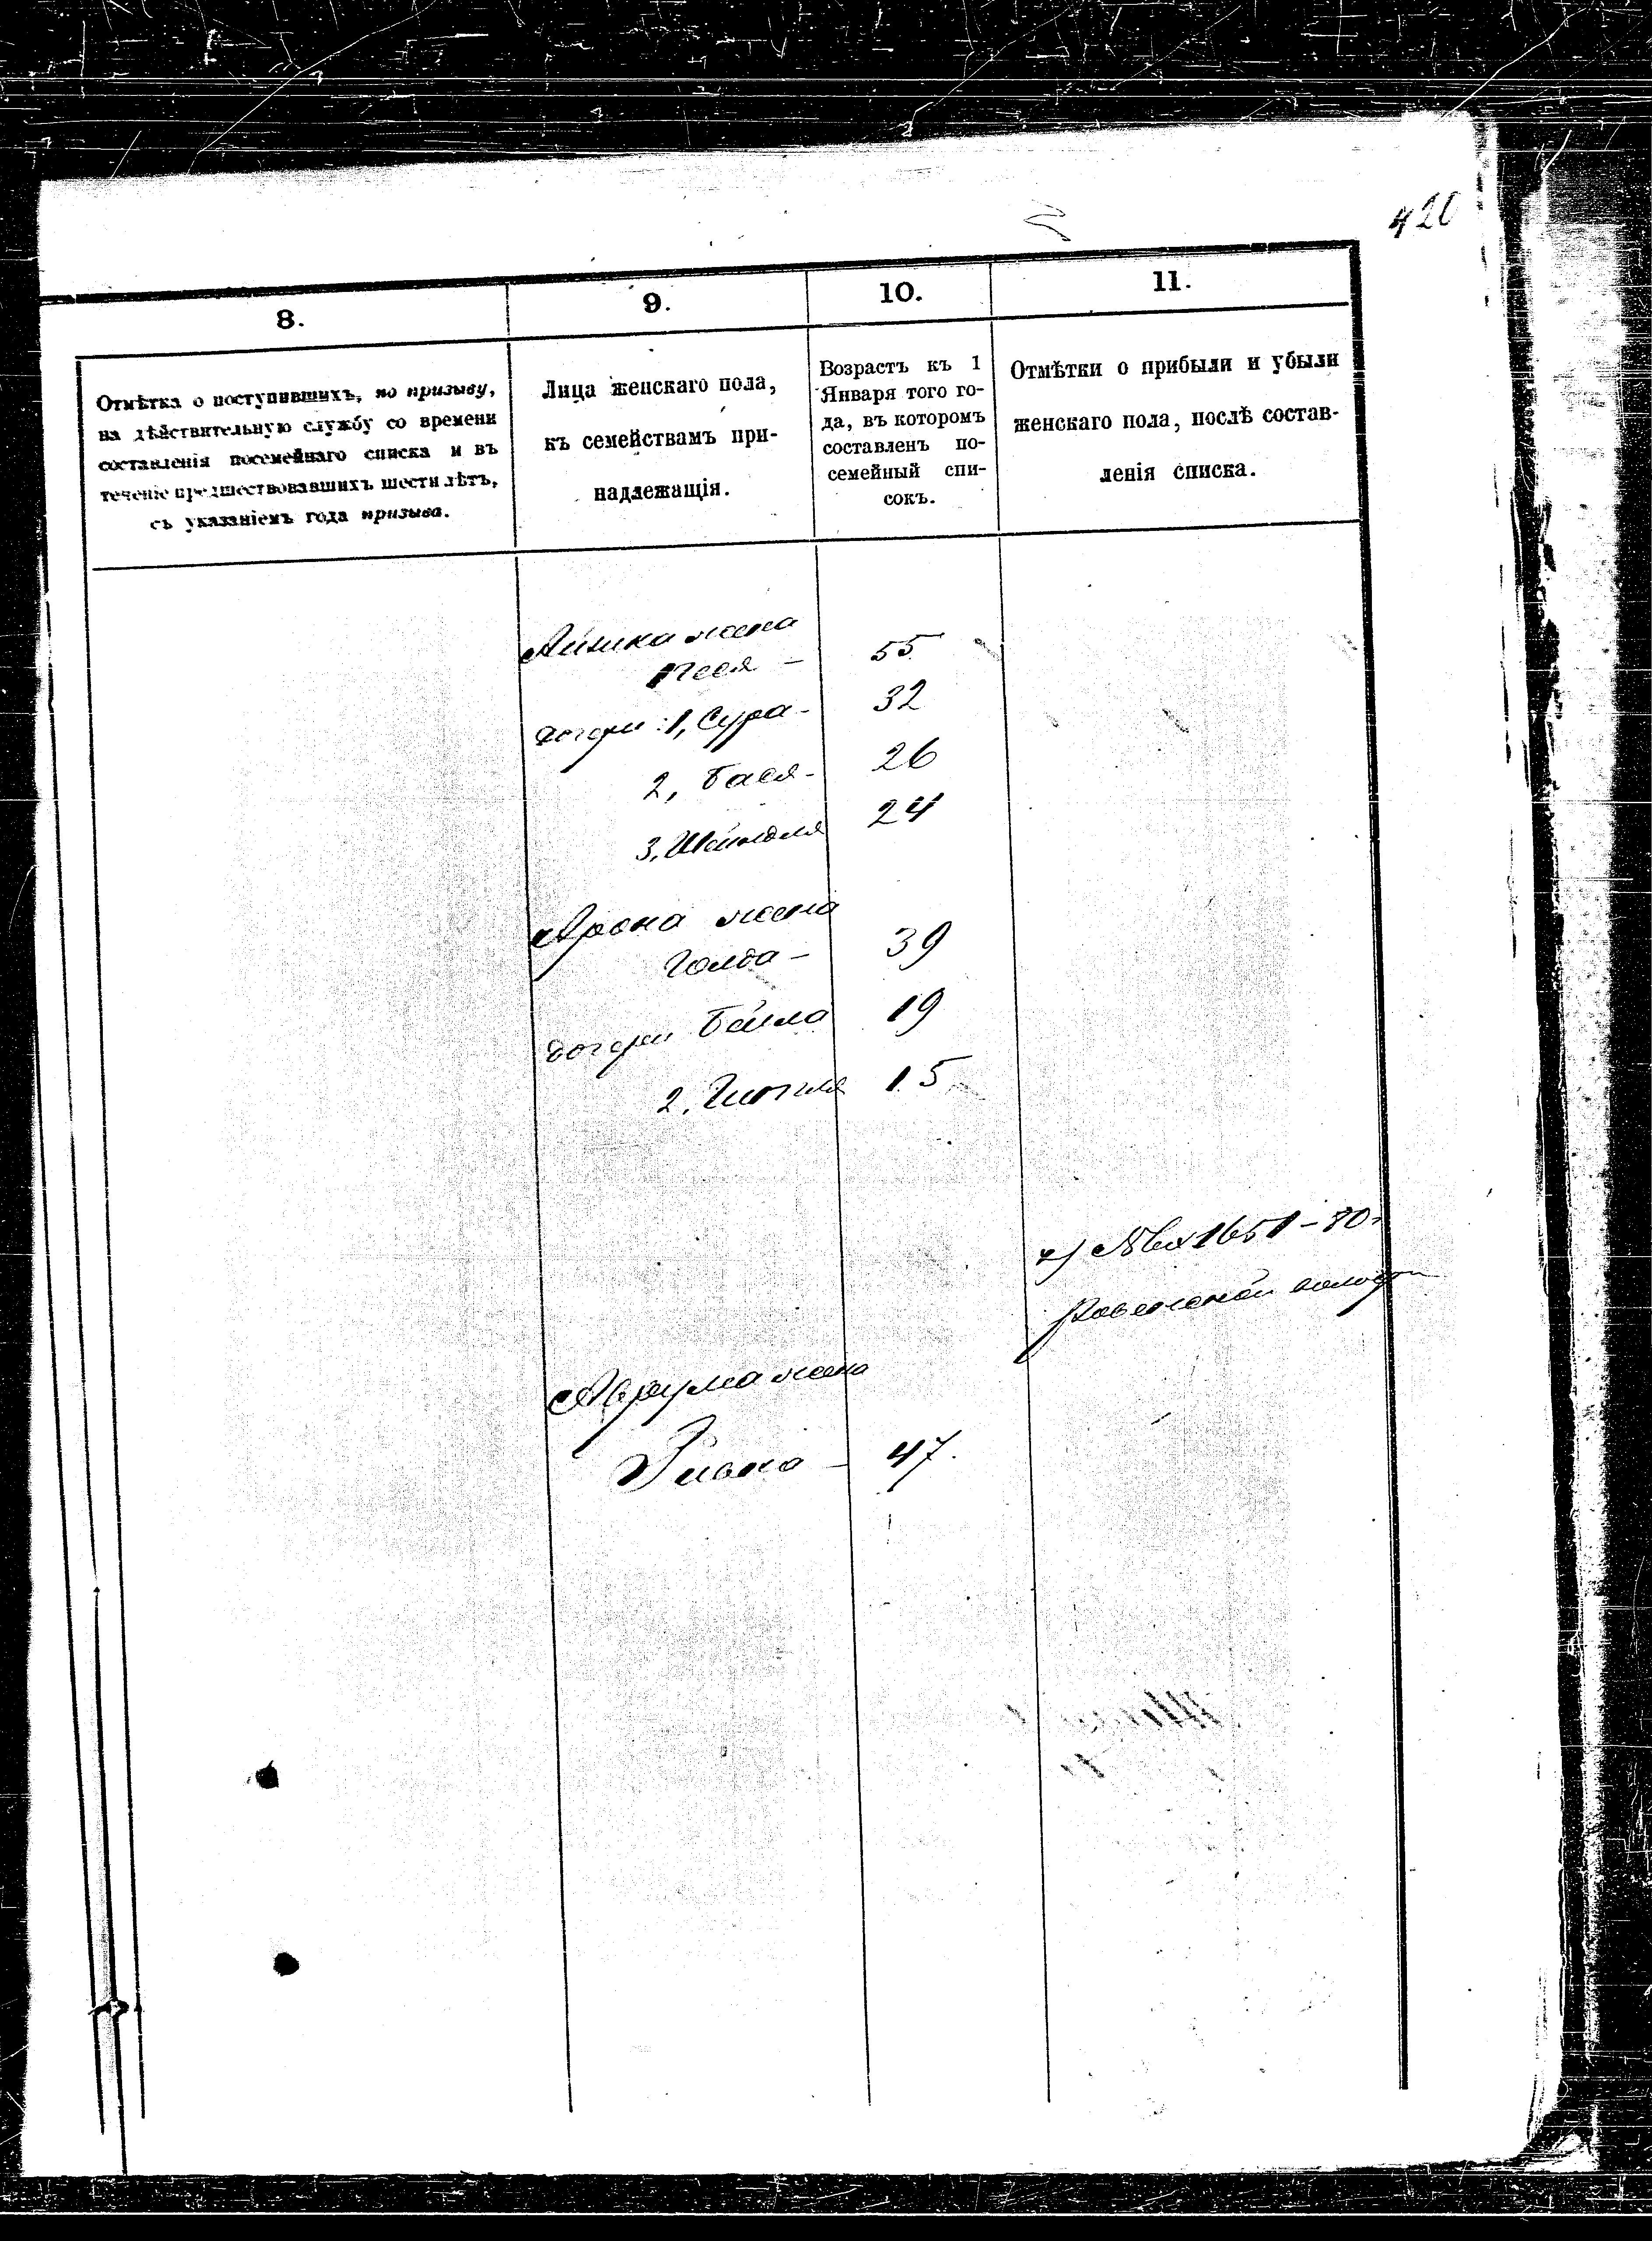 420
8.
9.
10.
11.
Отмѣтка о поступившихъ, по призыву,
на дѣйствительную службу со времени
составленія посемейнаго списка и въ
теченіе предшествовавшихъ шести лѣтъ,
съ указаніемъ года призыва.
Лица женскаго пола,
къ семействамъ при-
надлежащія.
Возрастъ къ 1
Января того го-
да, въ которомъ
составленъ по-
семейный спи-
сокъ.
Отмѣтки о прибыли и убыли
женскаго пола, послѣ состав-
ленія списка.
жена
Песя - 55
дочери: 1, Сура - 32
2, Бася - 26
3, Шейндля 24
Арона жена
Голда - 39
дочери Бейла 19
2, Гитля 15
1651-80
Аврума жена
Ривка - 47.